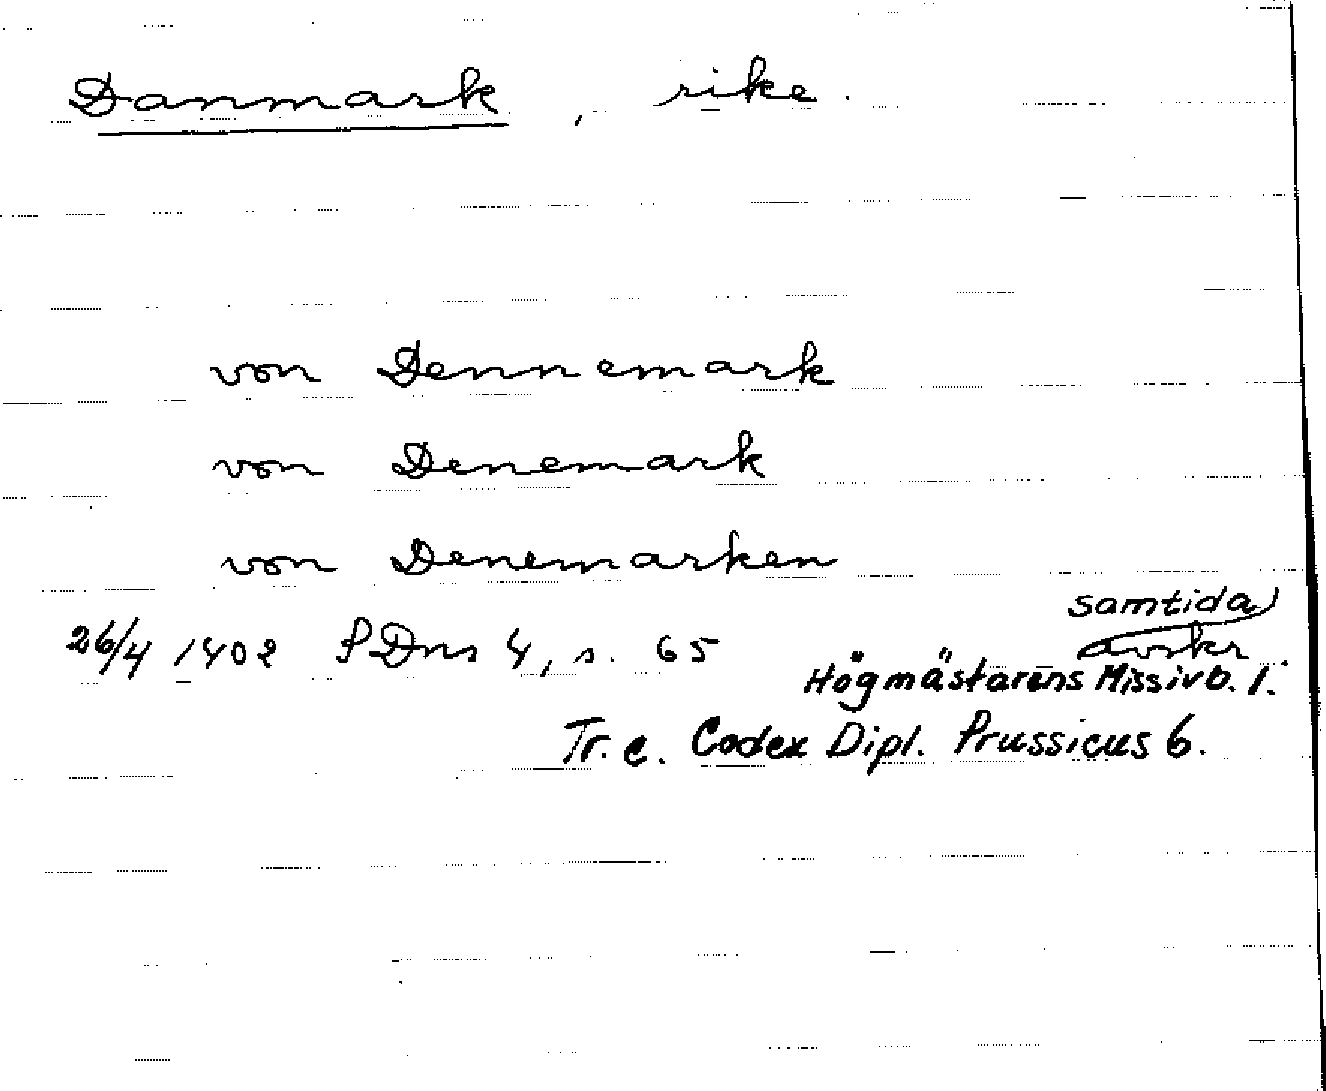 Danmark, rike.
von Dennemark
von Denemark
von Denemarken
samtida
26/4 1402 SDns 4, s. 65 avskr
Högmästarens Missivb. 1.
Tr. e. Codex Dipl. Prussicus 6.